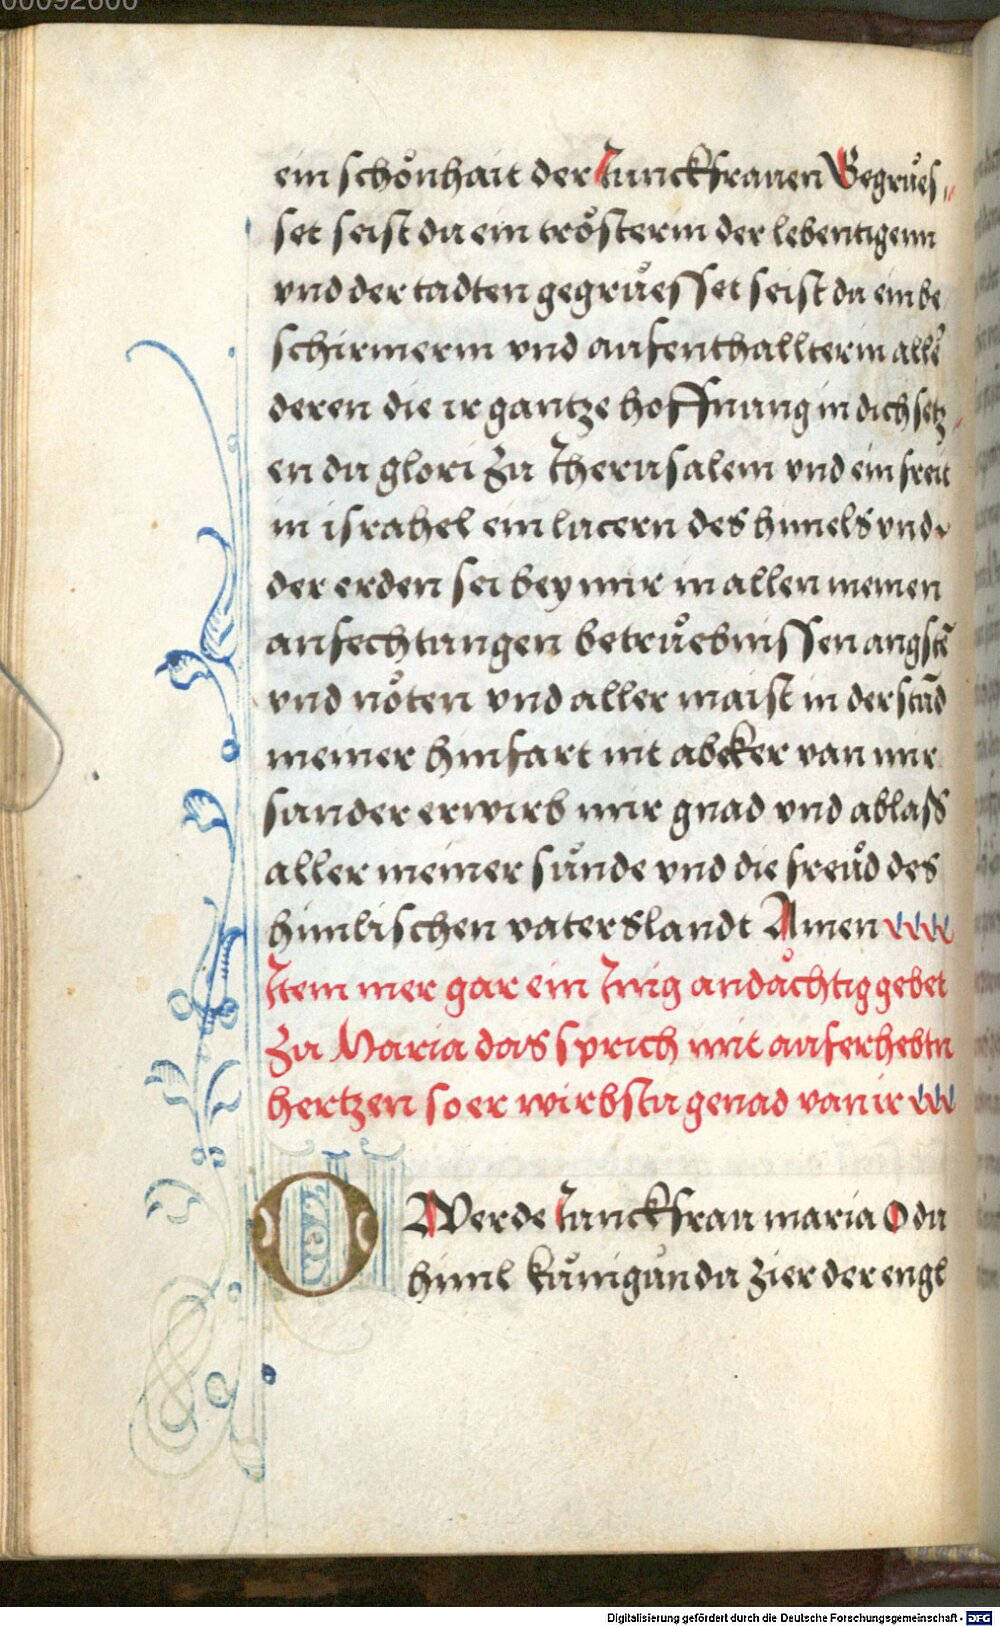 00092600
ein schoͤnhait der Junckfrauen Gegruͤes„
set seist du ein troͤsterin der lebentigenn
vnd der tadten gegruͤesset seist du ein be
schirmerin vnd aufenthallterin alle͛
deren die ir gantze hoffnung in dich setz„
en du glori zu Jherusalem vnd ein freit
in israhel ein lucern des himels vnd
der erden sei bey mir in allen meinen
anfechtungen betruͤebnissen angstē
vnd noͤten vnd aller maist in der stūd
meiner hinfart nit abker van mir
sunder erwirb mir gnad vnd ablass
aller meiner suͤnde vnd die freuͤd des
himlischen vaterslandt Amen
Item mer gar ein Jnig andaͤchtig gebet
zu Maria das sprich mit auferhebtn
hertzen so er wirbstu genad van ir
O Werde Junckfrau maria O du
himl kuͤnigun du zier der engl
Digitalisierung gefördert durch die Deutsche Forschungsgemeinschaft - DFG